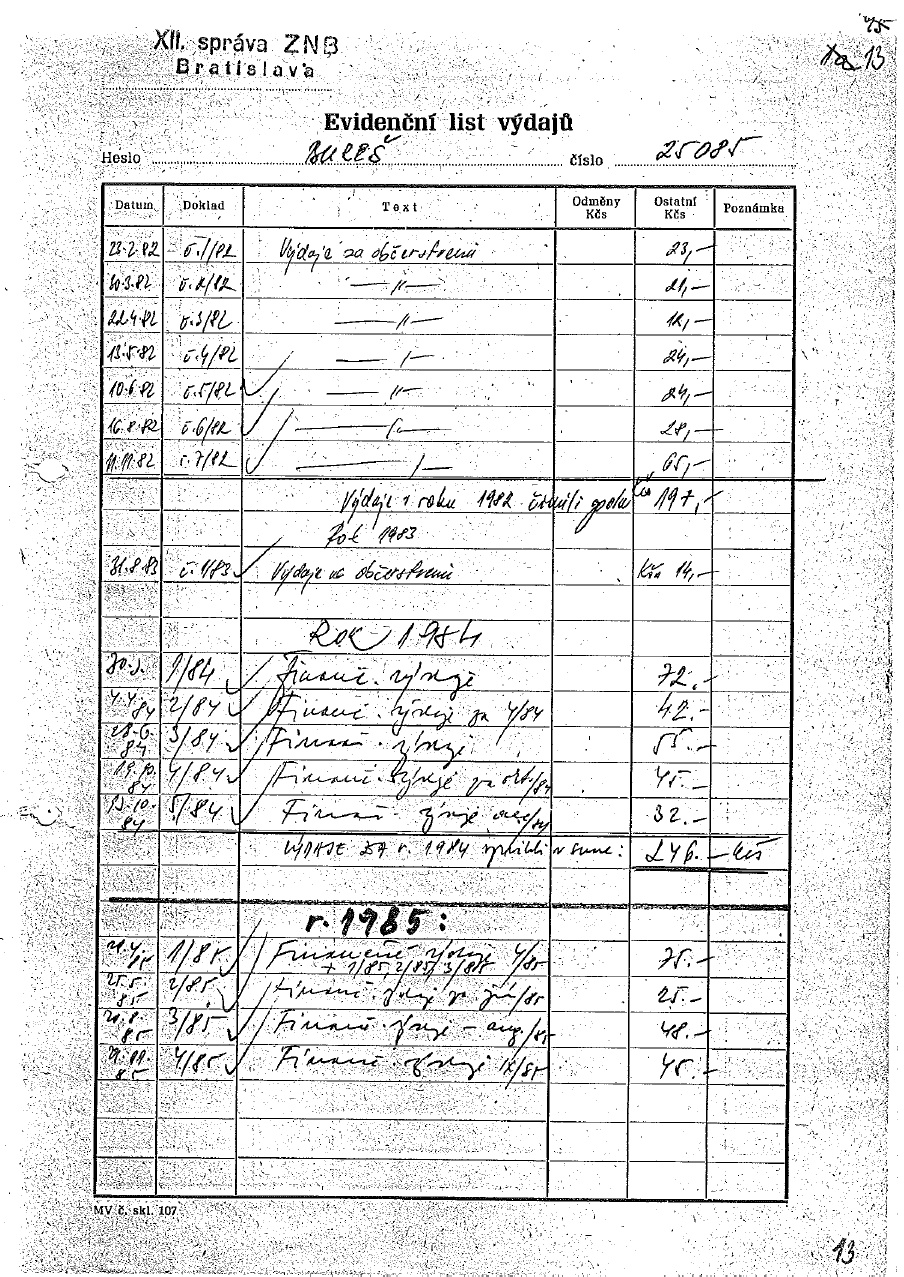 45
13
XII. správa ZNB
Bratislava
Evidenční list výdajů
Heslo BULEŠ číslo 25085
Datum Doklad Text Odměny Kčs Ostatní Kčs Poznámka
23.2.82 č.1/82 Výdaje za občerstvení 23,—
10.3.82 č.2/82 —〃— 21,—
22.4.82 č.3/82 —〃— 12,—
13.5.82 č.4/82 —〃— 24,—
10.6.82 č.5/82 —〃— 24,—
16.8.82 č.6/82 —〃— 28,—
11.11.82 č.7/82 —〃— 65,—
Výdaje v roku 1982 činili spolu Kčs 197,—
Rok 1983
31.8.83 č.1/83 Výdaje za občerstvení Kčs 14,—
Rok 1984
1/84 Finanč. výdaje 72.—
4.4.84 2/84 Finanč. výdaje za 4/84 42.—
28.6.84 3/84 Finanč. výdaje 55.—
19.10.84 4/84 Finanč. výdaje za okt./84 45.—
5/84 Finanč. výdaje 32.—
VÝDAJE ZA r. 1984 v sume: 246.— Kčs
r. 1985:
1/85 Finančné výdaje 4/85 75.—
+ 1/85, 2/85, 3/85
25.5.85 2/85 Finanč. výdaje za 25.—
20.8.85 3/85 Finanč. výdaje – aug./85 48.—
4/85 Finanč. výdaje IX/85 45.—
MV č. skl. 107
13